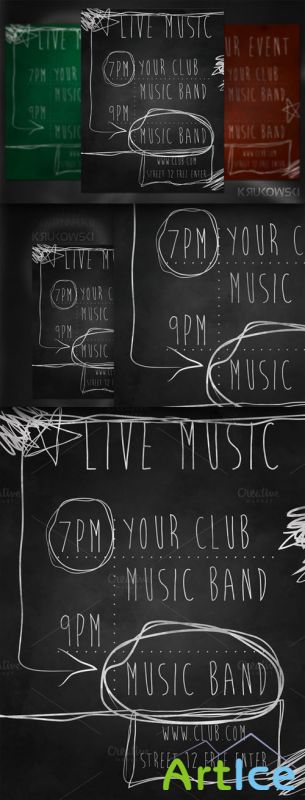 LIVE MUSIC
7PM YOUR CLUB
MUSIC BAND
9PM
MUSIC BAND
WWW.CLUB.COM
STREET 12 FREE ENTER
LIVE M
7PM
9PM
UR EVENT
UR CLUB
IC BAND
IC BAND
KRUKOWSKI
KRUKOWSKI
LIVE MUS
7PM YOUR C
MUSIC B
9PM
MUSIC B
7PM YOUR C
MUSIC
9PM
MUSIC
LIVE MUSIC
7PM YOUR CLUB
MUSIC BAND
9PM
MUSIC BAND
WWW.CLUB.COM
STREET 12 FREE ENTER
Creative
ArtIce